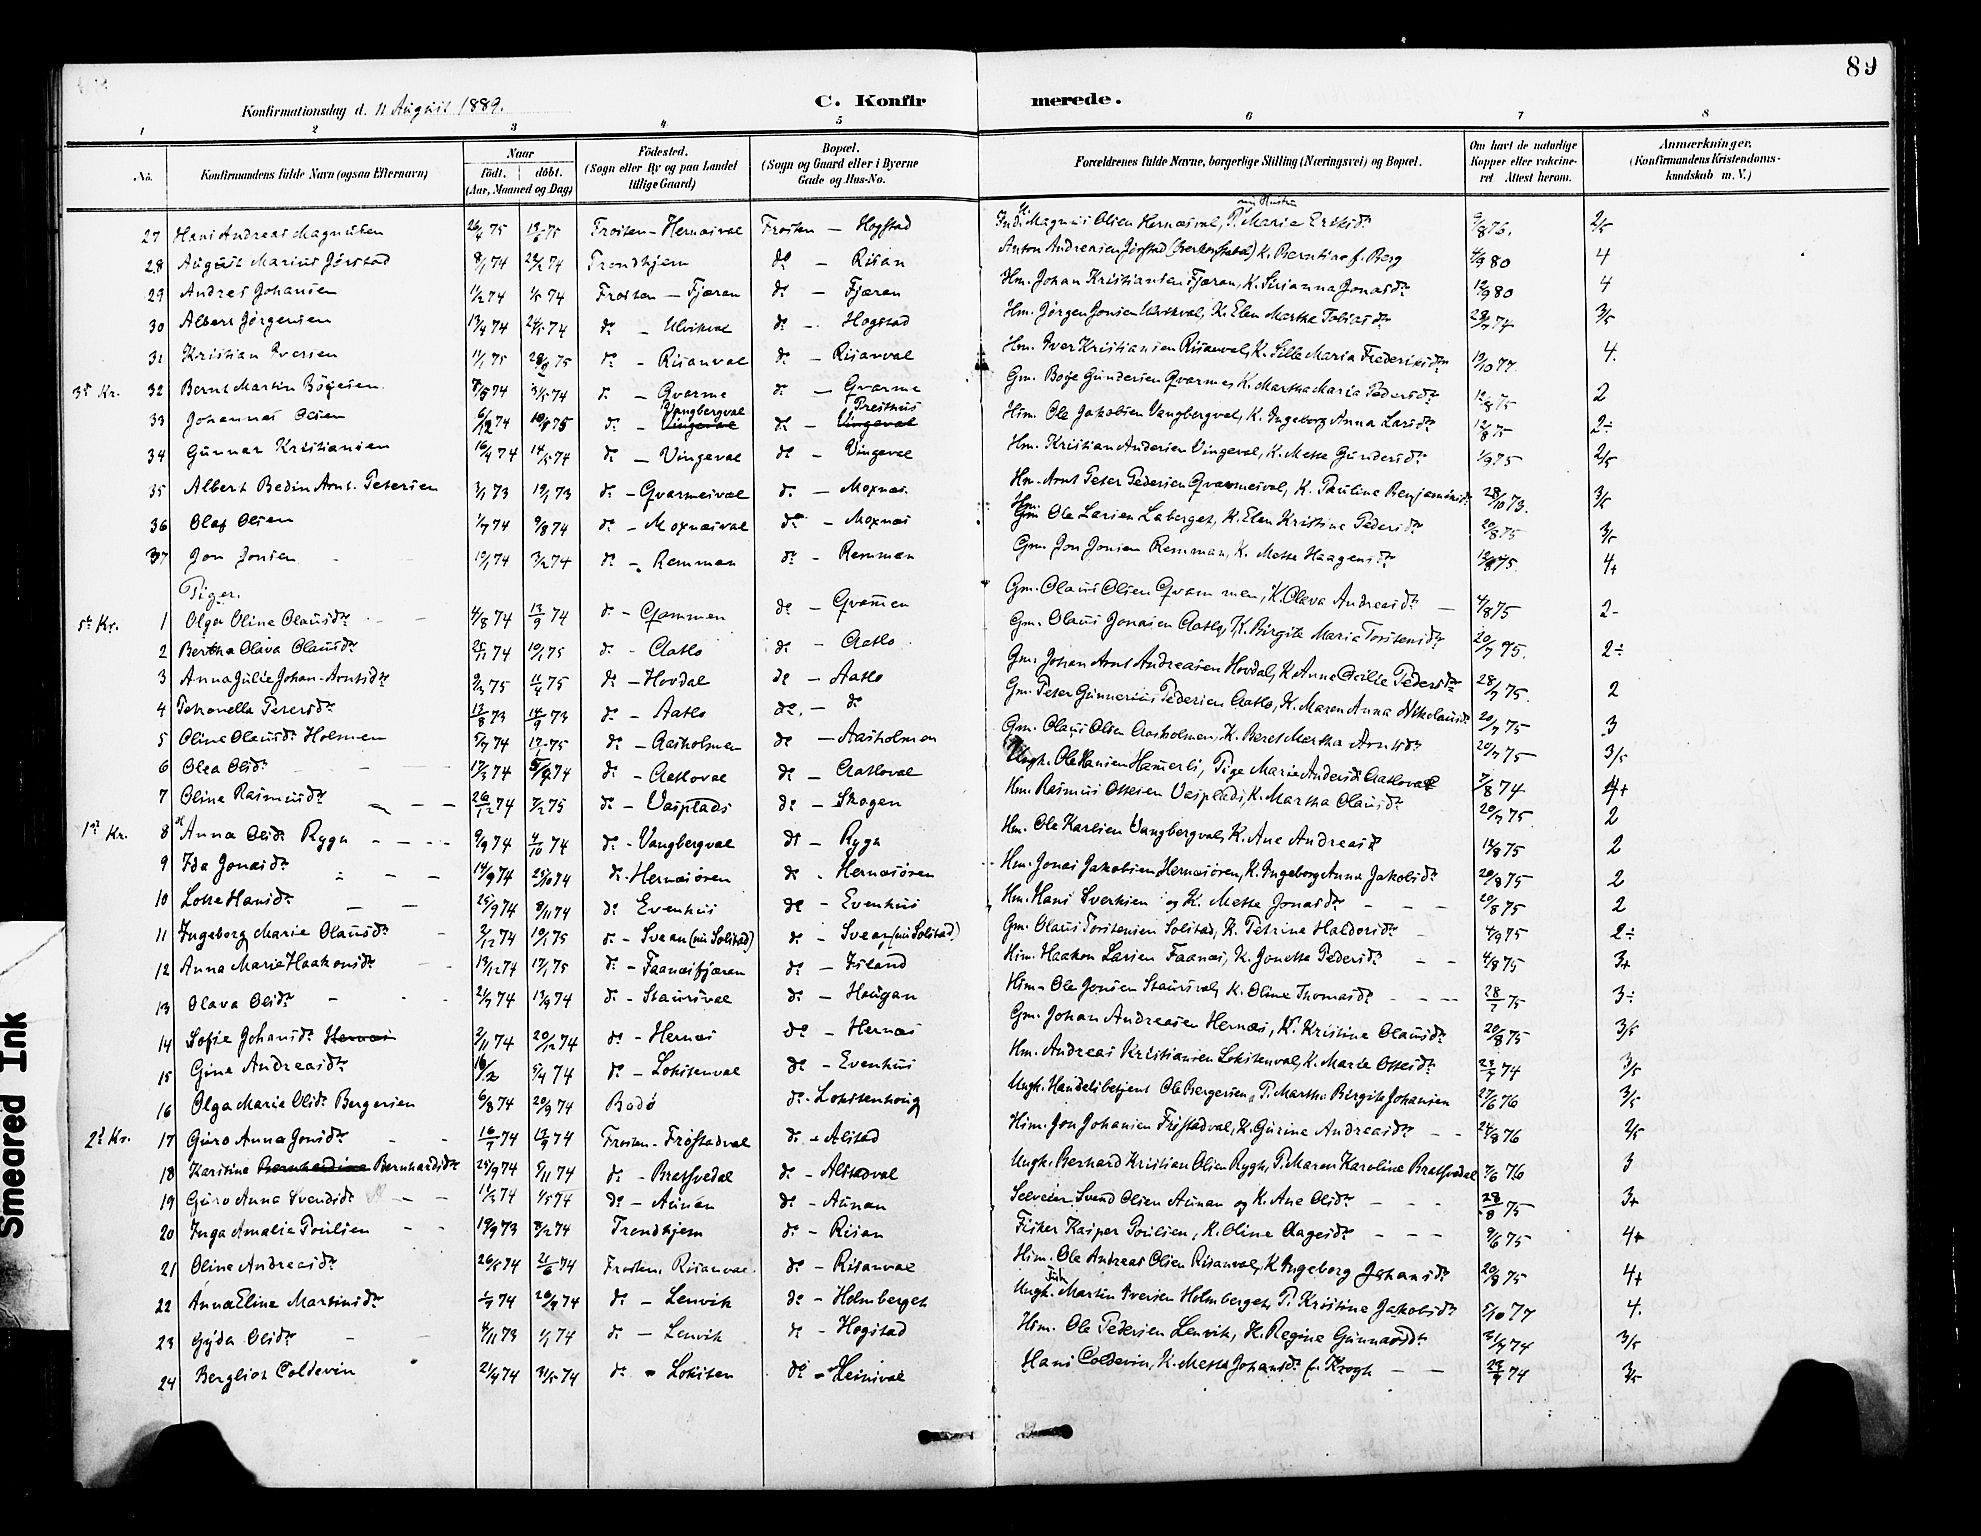 89
Konfirmationsdag d. 11 August 1889. C. Konfirmerede.
1 2 3 4 5 6 7 8
No. Konfirmandens fulde Navn (ogsaa Efternavn) Naar Födt. döbt. (Aar, Maaned og Dag) Födested. (Sogn eller By og paa Landet tillige Gaard) Bopæl. (Sogn og Gaard eller i Byerne Gade og Hus-No. Forældrenes fulde Navne, borgerlige Stilling (Næringsvei) og Bopæl. Om havt de naturlige Kopper eller vakcineret Attest herom. Anmærkninger. (Konfirmandens Kristendomskundskab m. V.)
27 Hans Andreas Magnussen 26/4 75 13/6 75 Frosten - Hernæsval Frosten - Hogstad Magnus Olsen Hernæsval, P. Marie Eriksdr. 9/8 76. 2/3
28 August Marius Jörstad 8/1 74 22/2 74 Trondhjem do - Risan Anton Andreasen Jörstad K. Berntine f. Berg 4/9 80 4
29 Andreas Johansen 11/2 74 1/5 74 Frosten - Fjæran do - Fjæran Hm. Johan Kristiansen Fjæran, K. Serianna Jonasdr. 12/9 80 4
30 Albert Jörgensen 13/4 74 24/5 74 do - Ulvikval do - Hogstad Hm. Jörgen Jonsen Ulvikval, K. Elen Martha Tobiasdr. 28/7 74 3/5
31 Kristian Iversen 11/1 75 28/2 75 do - Risanval do - Risanval Hm. Iver Kristiansen Risanval, K. Sille Maria Frederiksdr. 19/10 77. 4.
35 Kr. 32 Bernt Martin Böyesen 5/5 74 31/5 74 do - Qvarme do - Qvarme Gm. Boye Gundersen Qvarme, K. Martha Maria Pedersdr. 12/8 75 2
33 Johannes Olsen 6/12 74 10/1 75 do - Vangbergval do - Presthus Hm. Ole Jakobsen Vangbergval, K. Ingeborg Anna Larsdr. 12/8 75 2÷
34 Gunnar Kristiansen 16/4 74 14/5 74 do - Vingeval do - Vingeval Hm. Kristian Andersen Vingeval, K. Mette Gundersdr. 1/9 75 2/5
35 Albert Bedin Arnt. Petersen 3/1 73 19/1 73 do - Qvarmesval do - Moxnæs. Hm. Arnt Peter Pedersen Qvarmesval, K. Pauline Benjaminsdr. 28/10 73. 3/5
36 Olaf Olsen 1/7 74 9/8 74 do - Moxnæsval do - Moxnæs Hm. Ole Larsen Laberget, K. Elen Kristine Pedersdr. 20/8 75 3/5
37 Jon Jonsen 10/1 74 3/2 74 do - Remman do - Remman Gm. Jon Jonsen Remman, K. Mette Haagensdr. 12/8 75. 4+
Piger.
5te Kr. 1 Olga Oline Olausdr. 4/8 74 13/9 74 do - Qvammen do - Qvammen Gm. Olaus Olsen Qvammen, K. Olava Andreasdr. 4/8 75 2-
2 Bertha Olava Olausdr. 25/11 74 10/1 75 do - Aatlo do - Aatlo Gm. Olaus Jonasen Aatlo, K. Birgite Maria Torstensdr. 20/7 75. 2÷
3 Anna Julie Johan-Arntsdr. 9/3 75 11/4 75 do - Hovdal do - Aatlo Gm. Johan Arnt Andreasen Hovdal, K. Anne Cecilie Pedersdr. 28/7 75. 2
4 Petronella Petersdr. 13/8 73 14/9 73 do - Aatlo do. - do Gm. Peter Gunnerius Pedersen Aatlo, K. Maren Anna Nikolausdr. 20/7 75 3
5 Oline Olausdr. Holmen 5/7 74 17/1 75 do - Aasholmen do - Aasholmen Gm. Olaus Olsen Aasholmen, K. Beret Martha Arntsdr. 20/7 75 3/5
6 Olea Olsdr. 17/3 74 5/4 74 do - Aatloval do - Aatloval Ungk. Ole Hansen Hamerli, Pige Marie Andersdr. Aatloval 7/8 74 4+
7 Oline Rasmusdr. 26/12 74 7/2 75 do - Vasplads do - Skogan Hm. Rasmus Ottesen Vasplads, K. Martha Olausdr. 20/7 75. 2
1ste Kr. 8 Anna Olsdr. Rygn 9/9 74 4/10 74 do - Vangbergval do - Rygn Hm. Ole Karlsen Vangbergval, K. Ane Andreasdr. 19/8 75 2
9 Ida Jonasdr. 14/9 74 25/10 74 do - Hernæsören do - Hernæsören Hm. Jonas Jakobsen Hernæsören, K. Ingeborg Anna Jakobsdr. 20/8 75 2
10 Lotte Hansdr. 25/9 74 8/11 74 do Evenhus do - Evenhus Hm. Hans Sverkien og K. Mette Jonasdr. 20/8 75 2
11 Ingeborg Marie Olausdr. 2/12 74 10/1 75 do - Svean (nu Solstad) do - Svean (nu Solstad) Gm. Olaus Torstensen Solstad, K. Petrine Haldorsdr. 4/9 75 2÷
12 Anna Marie Haakonsdr. 13/12 74 17/1 75 do - Faanæsfjæran do - Island Hm. Haakon Larsen Faanæs, K. Jonetta Pedersdr. 4/8 75 3+
13 Olava Olsdr. 21/7 74 13/9 74 do - Staursval do - Haugan Hm. Ole Jonsen Staursval, K. Oline Thomasdr. 28/7 75 3÷
14 Sofie Johansdr. Hernæs 2/11 74 20/12 74 do - Hernæs do - Hernæs Gm. Johan Andreasen Hernæs, K. Kristine Olausdr. 20/8 75 3/5
15 Gina Andreasdr. 16/2 5/4 74 do - Lokstenval do - Evenhus Hm. Andreas Kristiansen Lokstenval, K. Marie Ottesdr. 23/7 74 3/5
16 Olga Maria Olsdr. Bergersen 6/8 74 20/9 74 Bodö do - Lokstenhoug Ungk. Handelsbetjent Ole Bergersen, P. Martha Birgite Johansen 27/6 76 3/5
2d Kr. 17 Guro Anna Jonsdr. 16/7 74 13/9 74 Frosten - Fröstadval do - Alstad Hm. Jon Johansen Fröstadval, K. Gurine Andreasdr. 24/8 76 2/5
18 Karstine Bernhardine Bernhardsdr. 25/9 74 5/11 74 do - Bratsvedal do - Alstadval Ungk. Berhard Kristian Olsen Rygh, P. Maren Karoline Bratsvedal 7/6 76 3
19 Guro Anna Svendsdr. 11/3 74 1/5 74 do - Aunan do - Aunan Selveier Svend Olsen Aunan og K. Ane Olsdr. 28/8 75 3+
20 Inga Amalie Poulsen 19/9 73 8/2 74 Trondhjem do - Risan Fisker Kasper Poulsen, K. Oline Aagesdr. 9/6 75 4+
21 Oline Andreasdr. 26/5 74 21/6 74 Frosten, Risanval do - Risanval Hm. Ole Andreas Olsen Risanval, K. Ingeborg Johansdr. 20/8 75 4+
22 Anna Eline Martinsdr. 1/7 74 20/9 74 do - Lenvik do - Holmberget Ungk. Martin Iversen Holmberget, P. Kristine Jakobsdr. 5/10 77 4.
23 Gyda Olsdr. 4/11 73 1/1 74 do - Lenvik do - Hogstad Hm. Ole Pedersen Lenvik, K. Regine Gunnarsdr. 31/7 74 3/5
24 Bergliot Coldevin 21/4 74 31/5 74 do - Loksten do - Leinsval Hans Coldevin, K. Metta Johansdr. f. Krogh 23/7 74 3/5
Smeared Ink